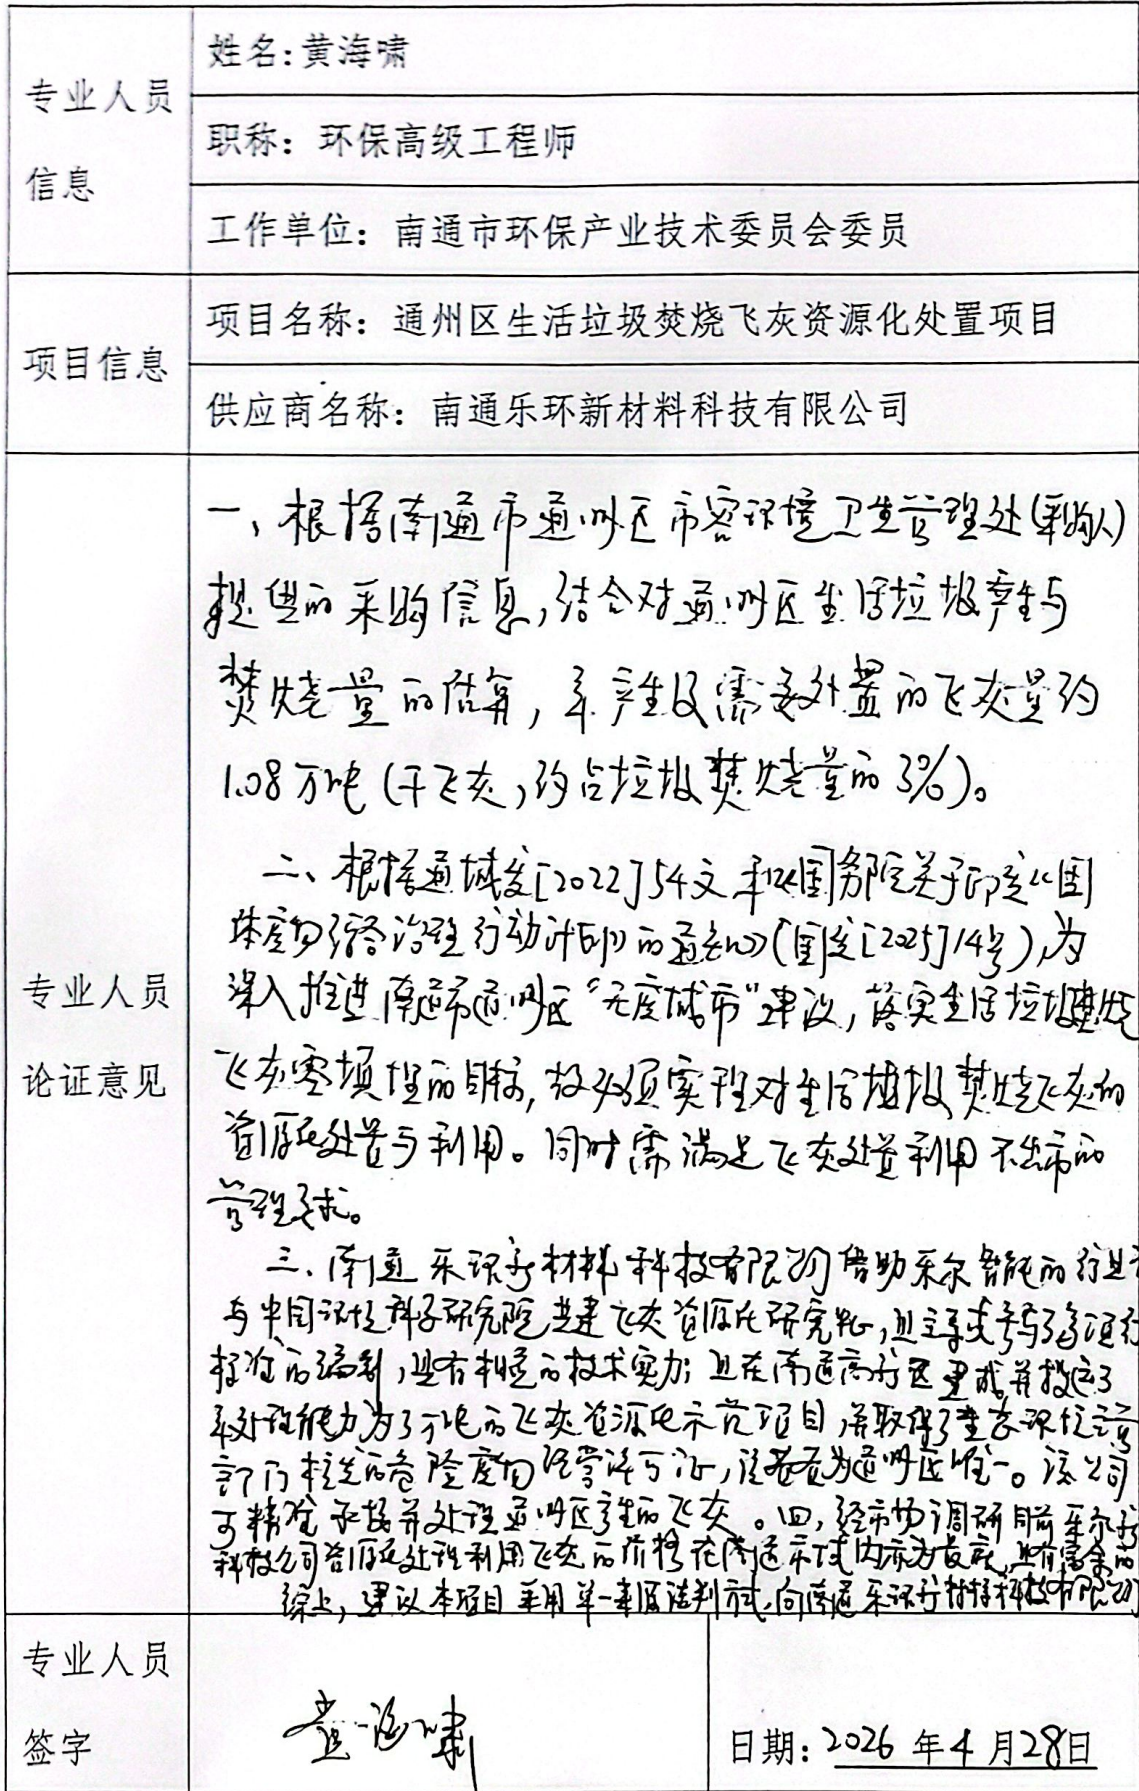 专业人员
信息
姓名：黄海啸
职称：环保高级工程师
工作单位：南通市环保产业技术委员会委员
项目信息
项目名称：通州区生活垃圾焚烧飞灰资源化处置项目
供应商名称：南通乐环新材料科技有限公司
专业人员
论证意见
一、根据南通市通州区市容环境卫生管理处(采购人)
提供的采购信息，结合对通州区生活垃圾产生与
焚烧量的估算，年产生及需要处置的飞灰量约
1.08万吨(干飞灰，约占垃圾焚烧量的3%)。
二、根据通城发[2022]54文和《国务院关于印发《固
体废物综合治理行动计划》的通知》(国发[2025]14号)，为
深入推进南通市通州区“无废城市”建设，落实生活垃圾焚烧
飞灰零填埋的目标，故必须实现对生活垃圾焚烧飞灰的
资源化处置与利用。同时需满足飞灰处置利用不出市的
管理要求。
三、南通乐环新材料科技有限公司借助乐尔智能的行业
与中国环境科学研究院共建飞灰资源化研究，且主导或参与了多项行
标准的编制，具有相应的技术实力；且在南通高新区建成并投运了
年处理能力为3万吨的飞灰资源化示范项目，并取得了生态环境主管
部门核发的危险废物经营许可证，该为通州区唯一。该公司
可精准承接并处理通州区产生的飞灰。四，经市场调研目前乐尔
科技公司资源化处理利用飞灰的价格在南通市域内亦为最，具有富余的
综上，建议本项目采用单一来源谈判方式，向南通乐环新材料科技有限公司
专业人员
签字
黄海啸
日期：2026年4月28日